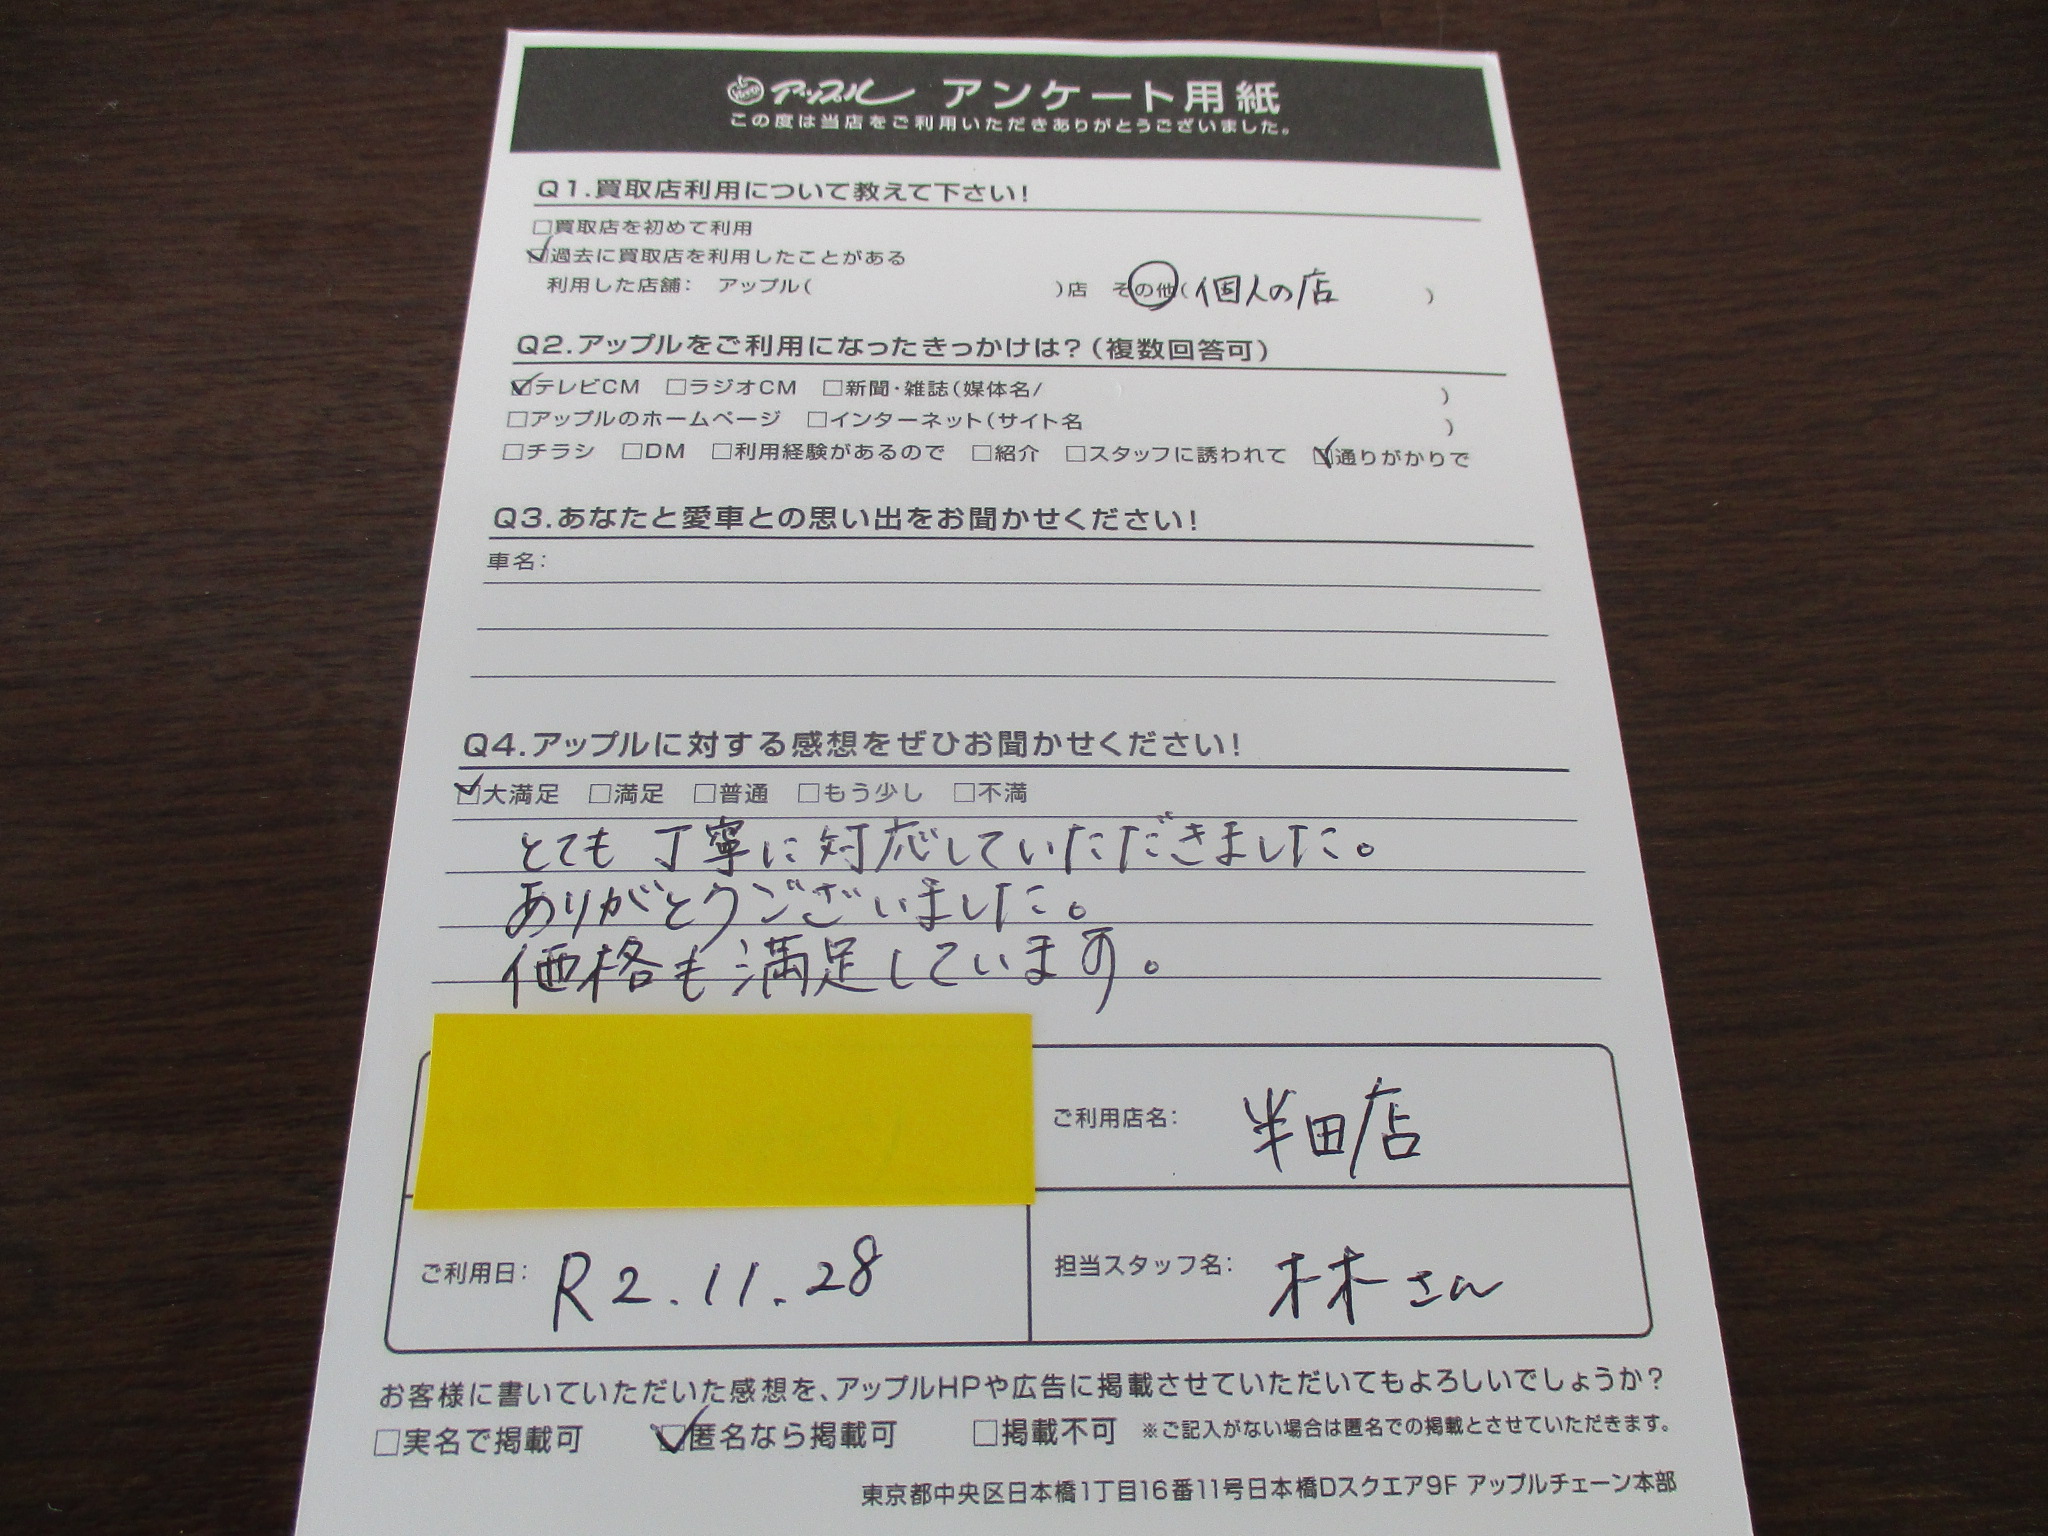 アップル アンケート用紙
この度は当店をご利用いただきありがとうございました。
Q1.買取店利用について教えて下さい!
□買取店を初めて利用
☑過去に買取店を利用したことがある
利用した店舗: アップル( )店 その他(個人の店 )
Q2.アップルをご利用になったきっかけは?(複数回答可)
☑テレビCM □ラジオCM □新聞・雑誌(媒体名/ )
□アップルのホームページ □インターネット(サイト名 )
□チラシ □DM □利用経験があるので □紹介 □スタッフに誘われて ☑通りがかりで
Q3.あなたと愛車との思い出をお聞かせください!
車名:
Q4.アップルに対する感想をぜひお聞かせください!
☑大満足 □満足 □普通 □もう少し □不満
とても丁寧に対応していただきました。
ありがとうございました。
価格も満足しています。
ご利用店名: 半田店
ご利用日: R2.11.28
担当スタッフ名: 林さん
お客様に書いていただいた感想を、アップルHPや広告に掲載させていただいてもよろしいでしょうか?
□実名で掲載可 ☑匿名なら掲載可 □掲載不可 ※ご記入がない場合は匿名での掲載とさせていただきます。
東京都中央区日本橋1丁目16番11号日本橋Dスクエア9F アップルチェーン本部